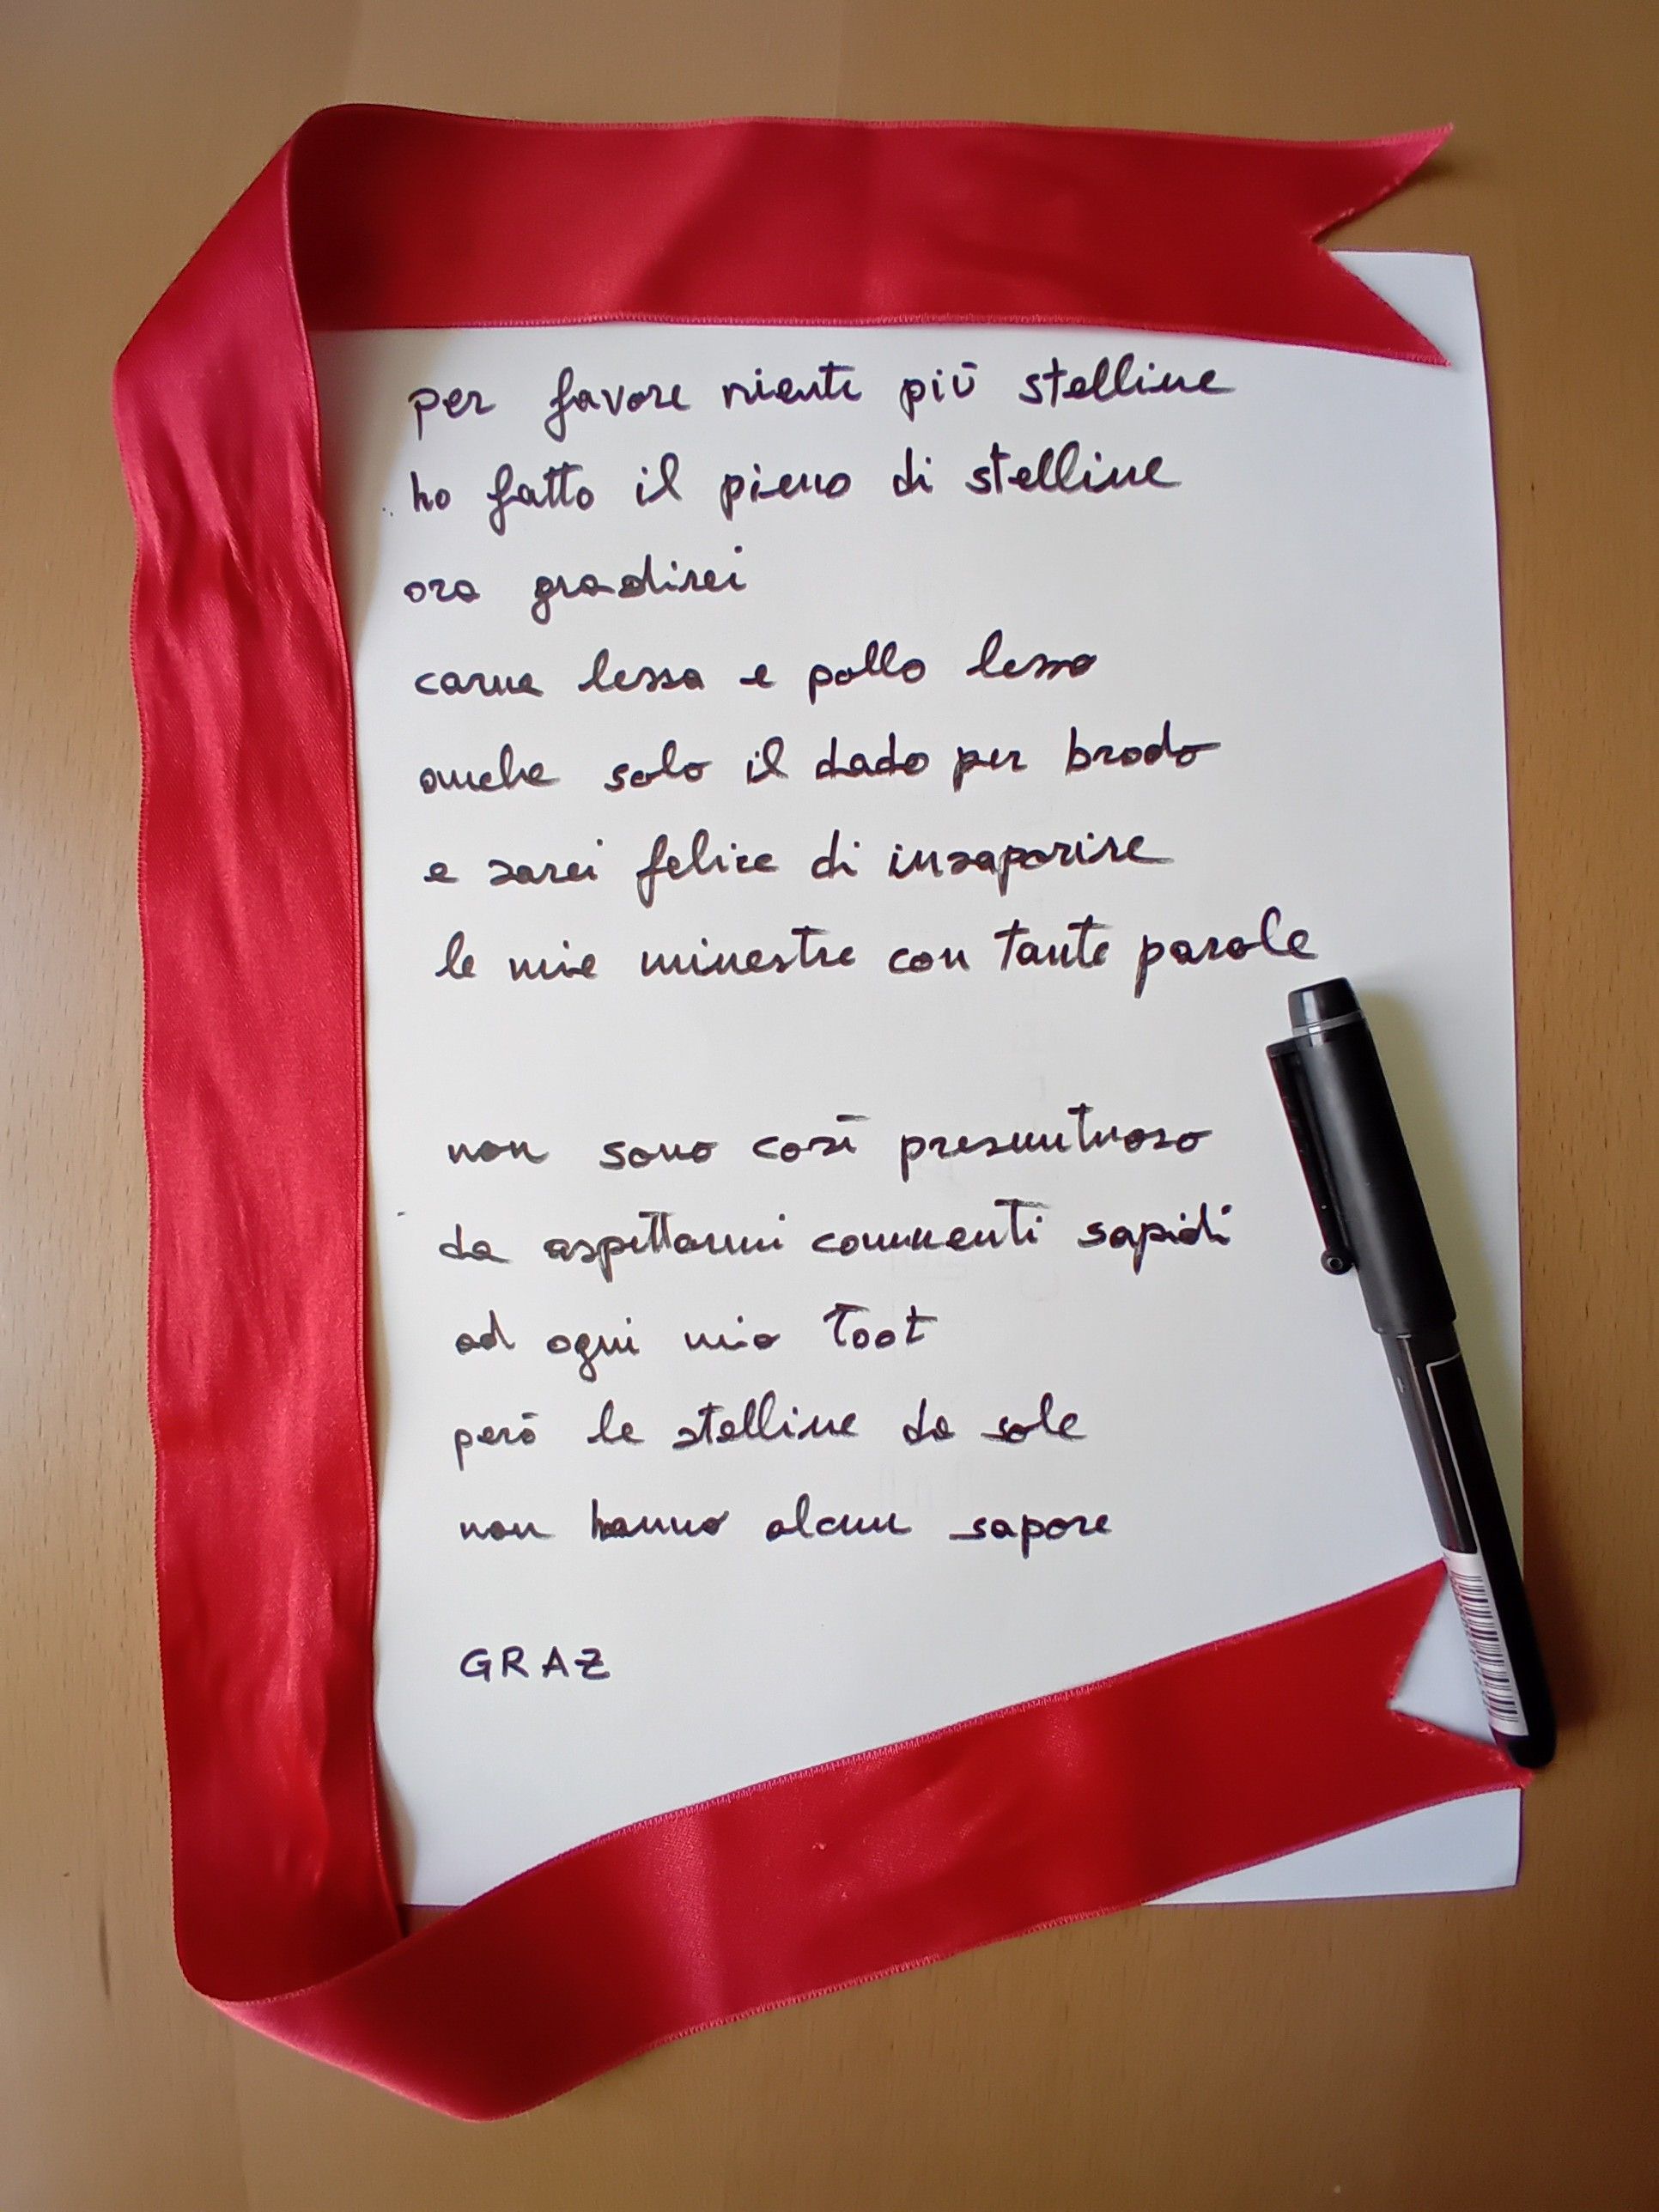 per favore niente più stelline
ho fatto il pieno di stelline
ora gradirei
carne lessa e pollo lesso
anche solo il dado per brodo
e sarei felice di insaporire
le mie minestre con tante parole
non sono così presuntuoso
da aspettarmi commenti sapidi
ad ogni mio toot
però le stelline da sole
non hanno alcun sapore
GRAZ